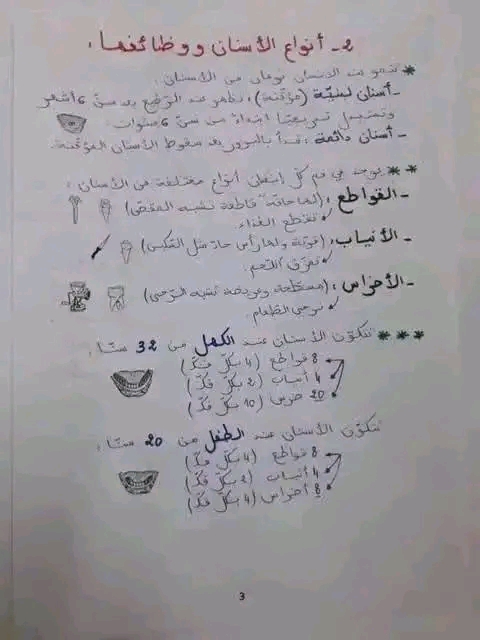 2- أنواع الأسنان ووظائفها:
* تنمو عند الإنسان نوعان من الأسنان:
- أسنان لبنيّة (مؤقتة): تظهر عند الرضيع بعد سنّ 6 أشهر
وتستبدل تدريجيّا ابتداءً من سنّ 6 سنوات.
- أسنان دائمة: تبدأ بالبروز بعد سقوط الأسنان المؤقتة.
** يوجد في فم كلّ إنسان أنواع مختلفة من الأسنان:
- القواطع: (لها حافة قاطعة تشبه المقصّ)
تقتطع الغذاء
- الأنياب: (قويّة ولها رأس حادّ مثل السّكين)
تمزّق اللّحم.
- الأضراس: (مسطّحة وعريضة تشبه الرّحى)
ترحي الطّعام.
*** تتكوّن الأسنان عند الكهل من 32 سنّا:
8 قواطع (4 بكلّ فكّ)
4 أنياب (2 بكلّ فكّ)
20 ضرس (10 بكلّ فكّ)
تتكوّن الأسنان عند الطفل من 20 سنّا:
8 قواطع (4 بكلّ فكّ)
4 أنياب (2 بكلّ فكّ)
8 أضراس (4 بكلّ فكّ)
3